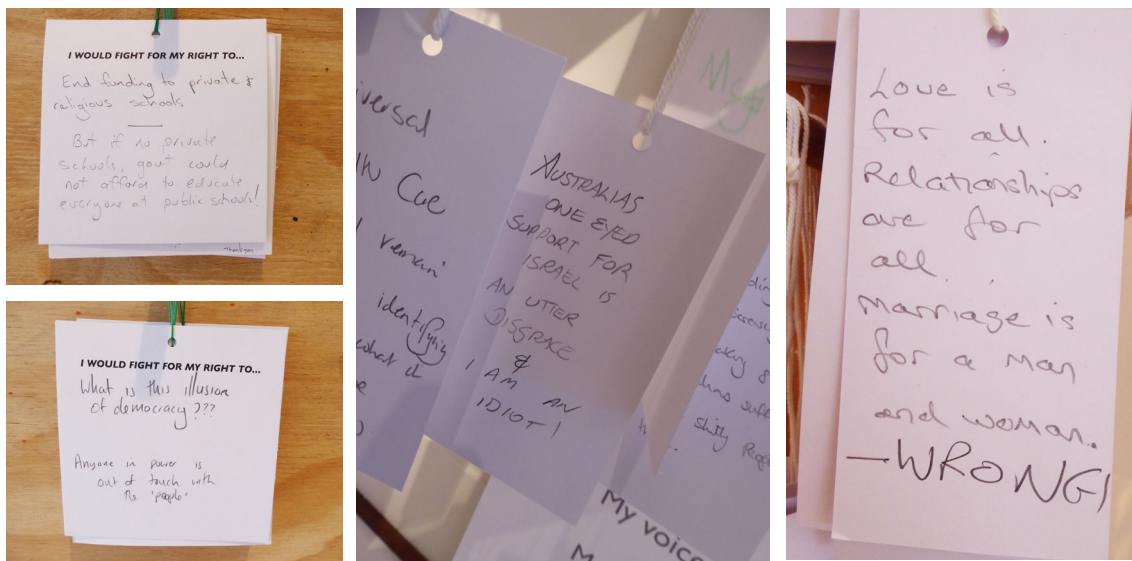 I WOULD FIGHT FOR MY RIGHT TO...
End funding to private &
religious schools
But if no private
schools, govt could
not afford to educate
everyone at public schools!
I WOULD FIGHT FOR MY RIGHT TO...
What is this illusion
of democracy???
Anyone in power is
out of touch with
the 'people'
iversal
Cue
remain
identifying
what it
AUSTRALIAS
ONE EYED
SUPPORT FOR
ISRAEL IS
AN UTTER
DISGRACE
&
I AM AN
IDIOT!
shitty
My voice
M
Love is
for all.
Relationships
are for
all.
Marriage is
for a man
and woman.
—WRONG!